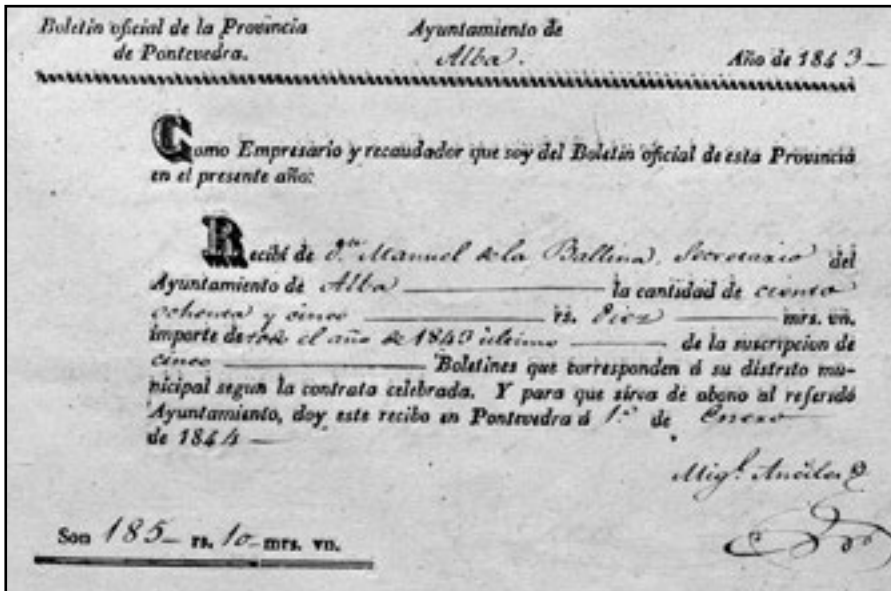 Boletin oficial de la Provincia de Pontevedra.
Ayuntamiento de Alba.
Año de 1843
Como Empresario y recaudador que soy del Boletin oficial de esta Provincia
en el presente año:
Recibí de D.n Manuel de la Ballina, Secretario del
Ayuntamiento de Alba la cantidad de ciento
ochenta y cinco rs. diez mrs. vn.
importe de todo el año de 1843 ultimo de la suscripcion de
cinco Boletines que corresponden á su distrito mu-
nicipal segun la contrata celebrada. Y para que sirva de abono al referido
Ayuntamiento, doy este recibo en Pontevedra á 1.º de Enero
de 1844
Mig.l
Son 185 rs. 10 mrs. vn.